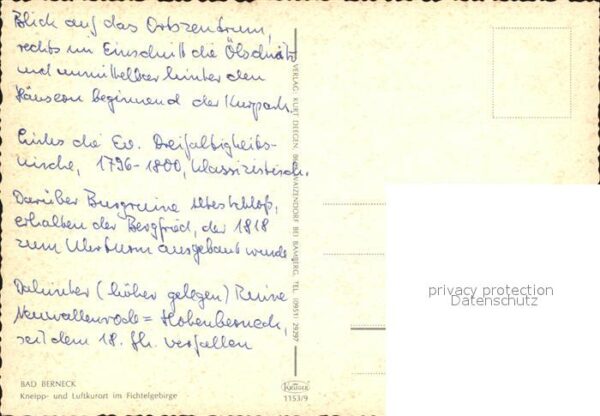 Blick auf das Ortszentrum,
rechts im Einschnitt die Ölschnitz
und unmittelbar hinter den
Häusern beginnend der Kurpark.
Links die Ev. Dreifaltigkeits-
kirche, 1796-1800, klassizistisch.
Darüber Burgruine Altes Schloß,
erhalten der Bergfried, der 1818
zum Uhrturm ausgebaut wurde.
Dahinter (höher gelegen) Ruine
Neuwallenrode = Hohenberneck,
seit dem 18. Jh. verfallen
BAD BERNECK
Kneipp- und Luftkurort im Fichtelgebirge
VERLAG KURT DEEGEN BEI BAMBERG, TEL. (0951) 29297
KRÜGER
1153/9
privacy protection
Datenschutz